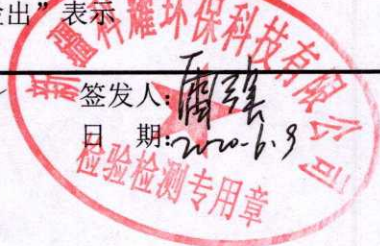 出”表示
新疆科耀环保科技有限公司
签发人：
日　期：2020.6.9
检验检测专用章